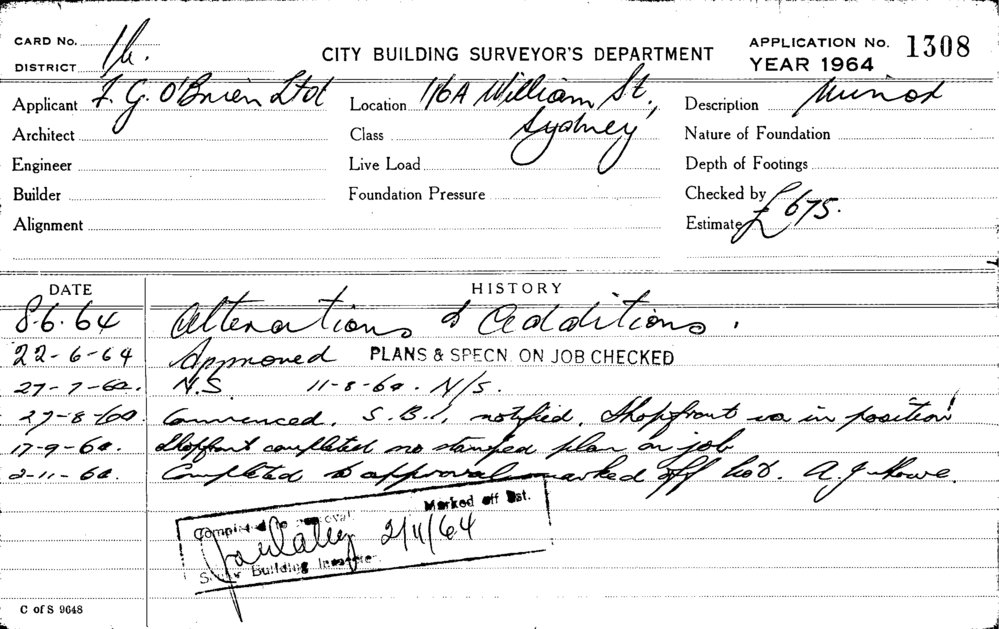 CARD No.
DISTRICT
CITY BUILDING SURVEYOR'S DEPARTMENT
APPLICATION No. 1308
YEAR 1964
Applicant F. G. O'Brien Ltd
Location 116A William St., Sydney
Description Minor
Architect
Class
Nature of Foundation
Engineer
Live Load
Depth of Footings
Builder
Foundation Pressure
Checked by
Alignment
Estimate £675.
DATE
HISTORY
8.6.64 Alterations & Additions.
22-6-64 Approved PLANS & SPECN. ON JOB CHECKED
27-7-64. N.S. 11-8-64. N/S.
27-8-64. Commenced. S.B.I. notified. Shopfront is in position
17-9-64. Shopfront completed no stamped plan on job
2-11-64. Completed to approval marked off list. A. J. Howe.
Marked off list.
Completed to approval
2/11/64
Senior Building Inspector
C of S 9648